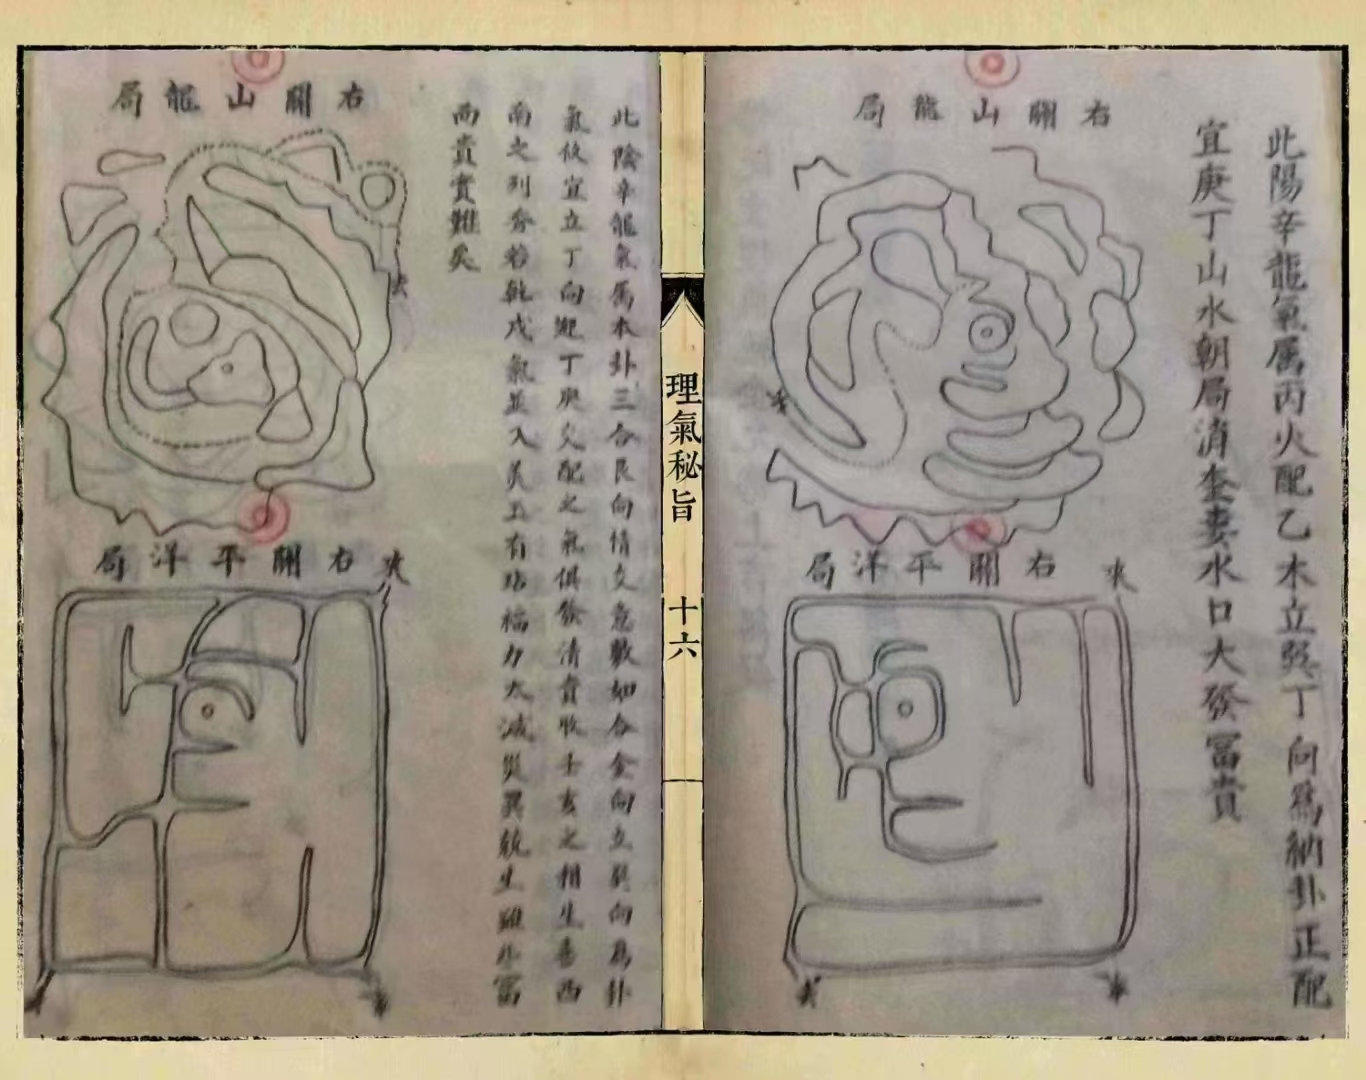 右關山龍局
此陽辛龍氣屬丙火配乙木立巽丁向為納卦正配
宜庚丁山水朝局消奎婁水口大發冨貴
右關平洋局
來
去
水
理氣秘旨
十六
右關山龍局
此陰辛龍氣屬本卦三合艮向情交意敷如合金向立巽向為卦
氣攸宜立丁向迎丁庚交配之氣俱發清貴收壬亥之相生喜酉
南之列秀若乾戌氣並入美玉有玷福力大減災異競生雖非富
而貴實難矣
去
右關平洋局
來
水